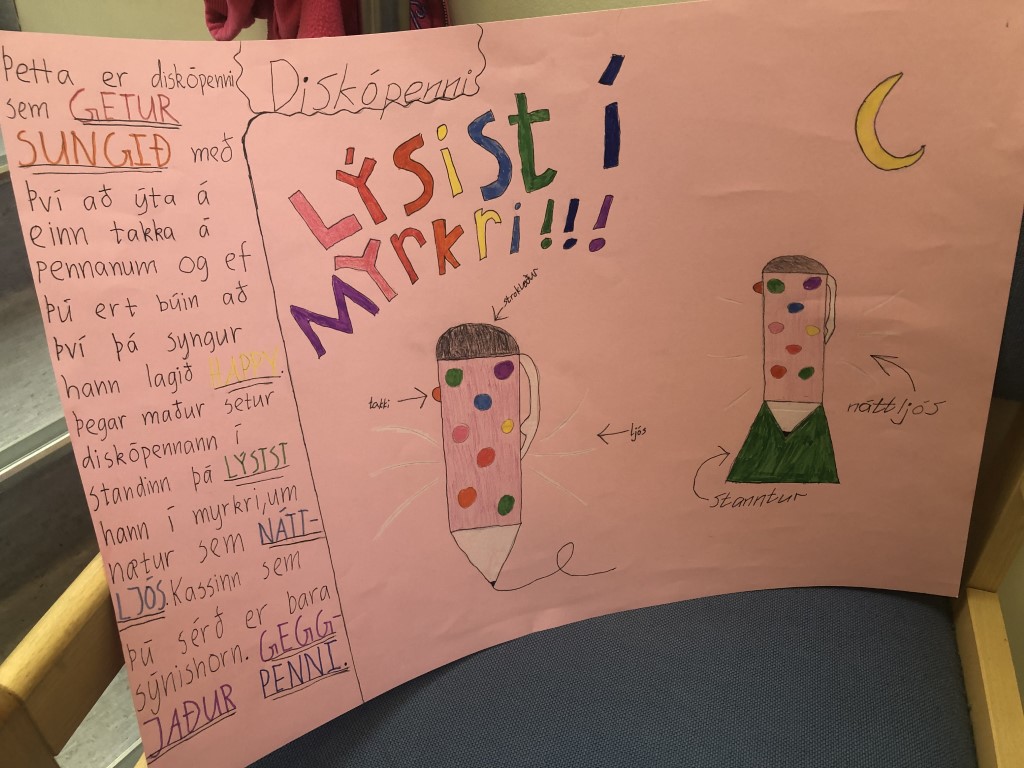 Þetta er diskópenni
sem GETUR
SUNGIÐ með
því að ýta á
einn takka á
pennanum og ef
þú ert búin að
því þá syngur
hann lagið HAPPY.
Þegar maður setur
diskópennann í
standinn þá LÝSIST
hann í myrkri,um
nætur sem NÁTT-
LJÓS.Kassinn sem
þú sérð er bara
sýnishorn. GEGG-
JAÐUR PENNI.
Diskópenni
LÝSIST Í
MYRKRI!!!
strokleður
takki
ljós
náttljós
Stanntur